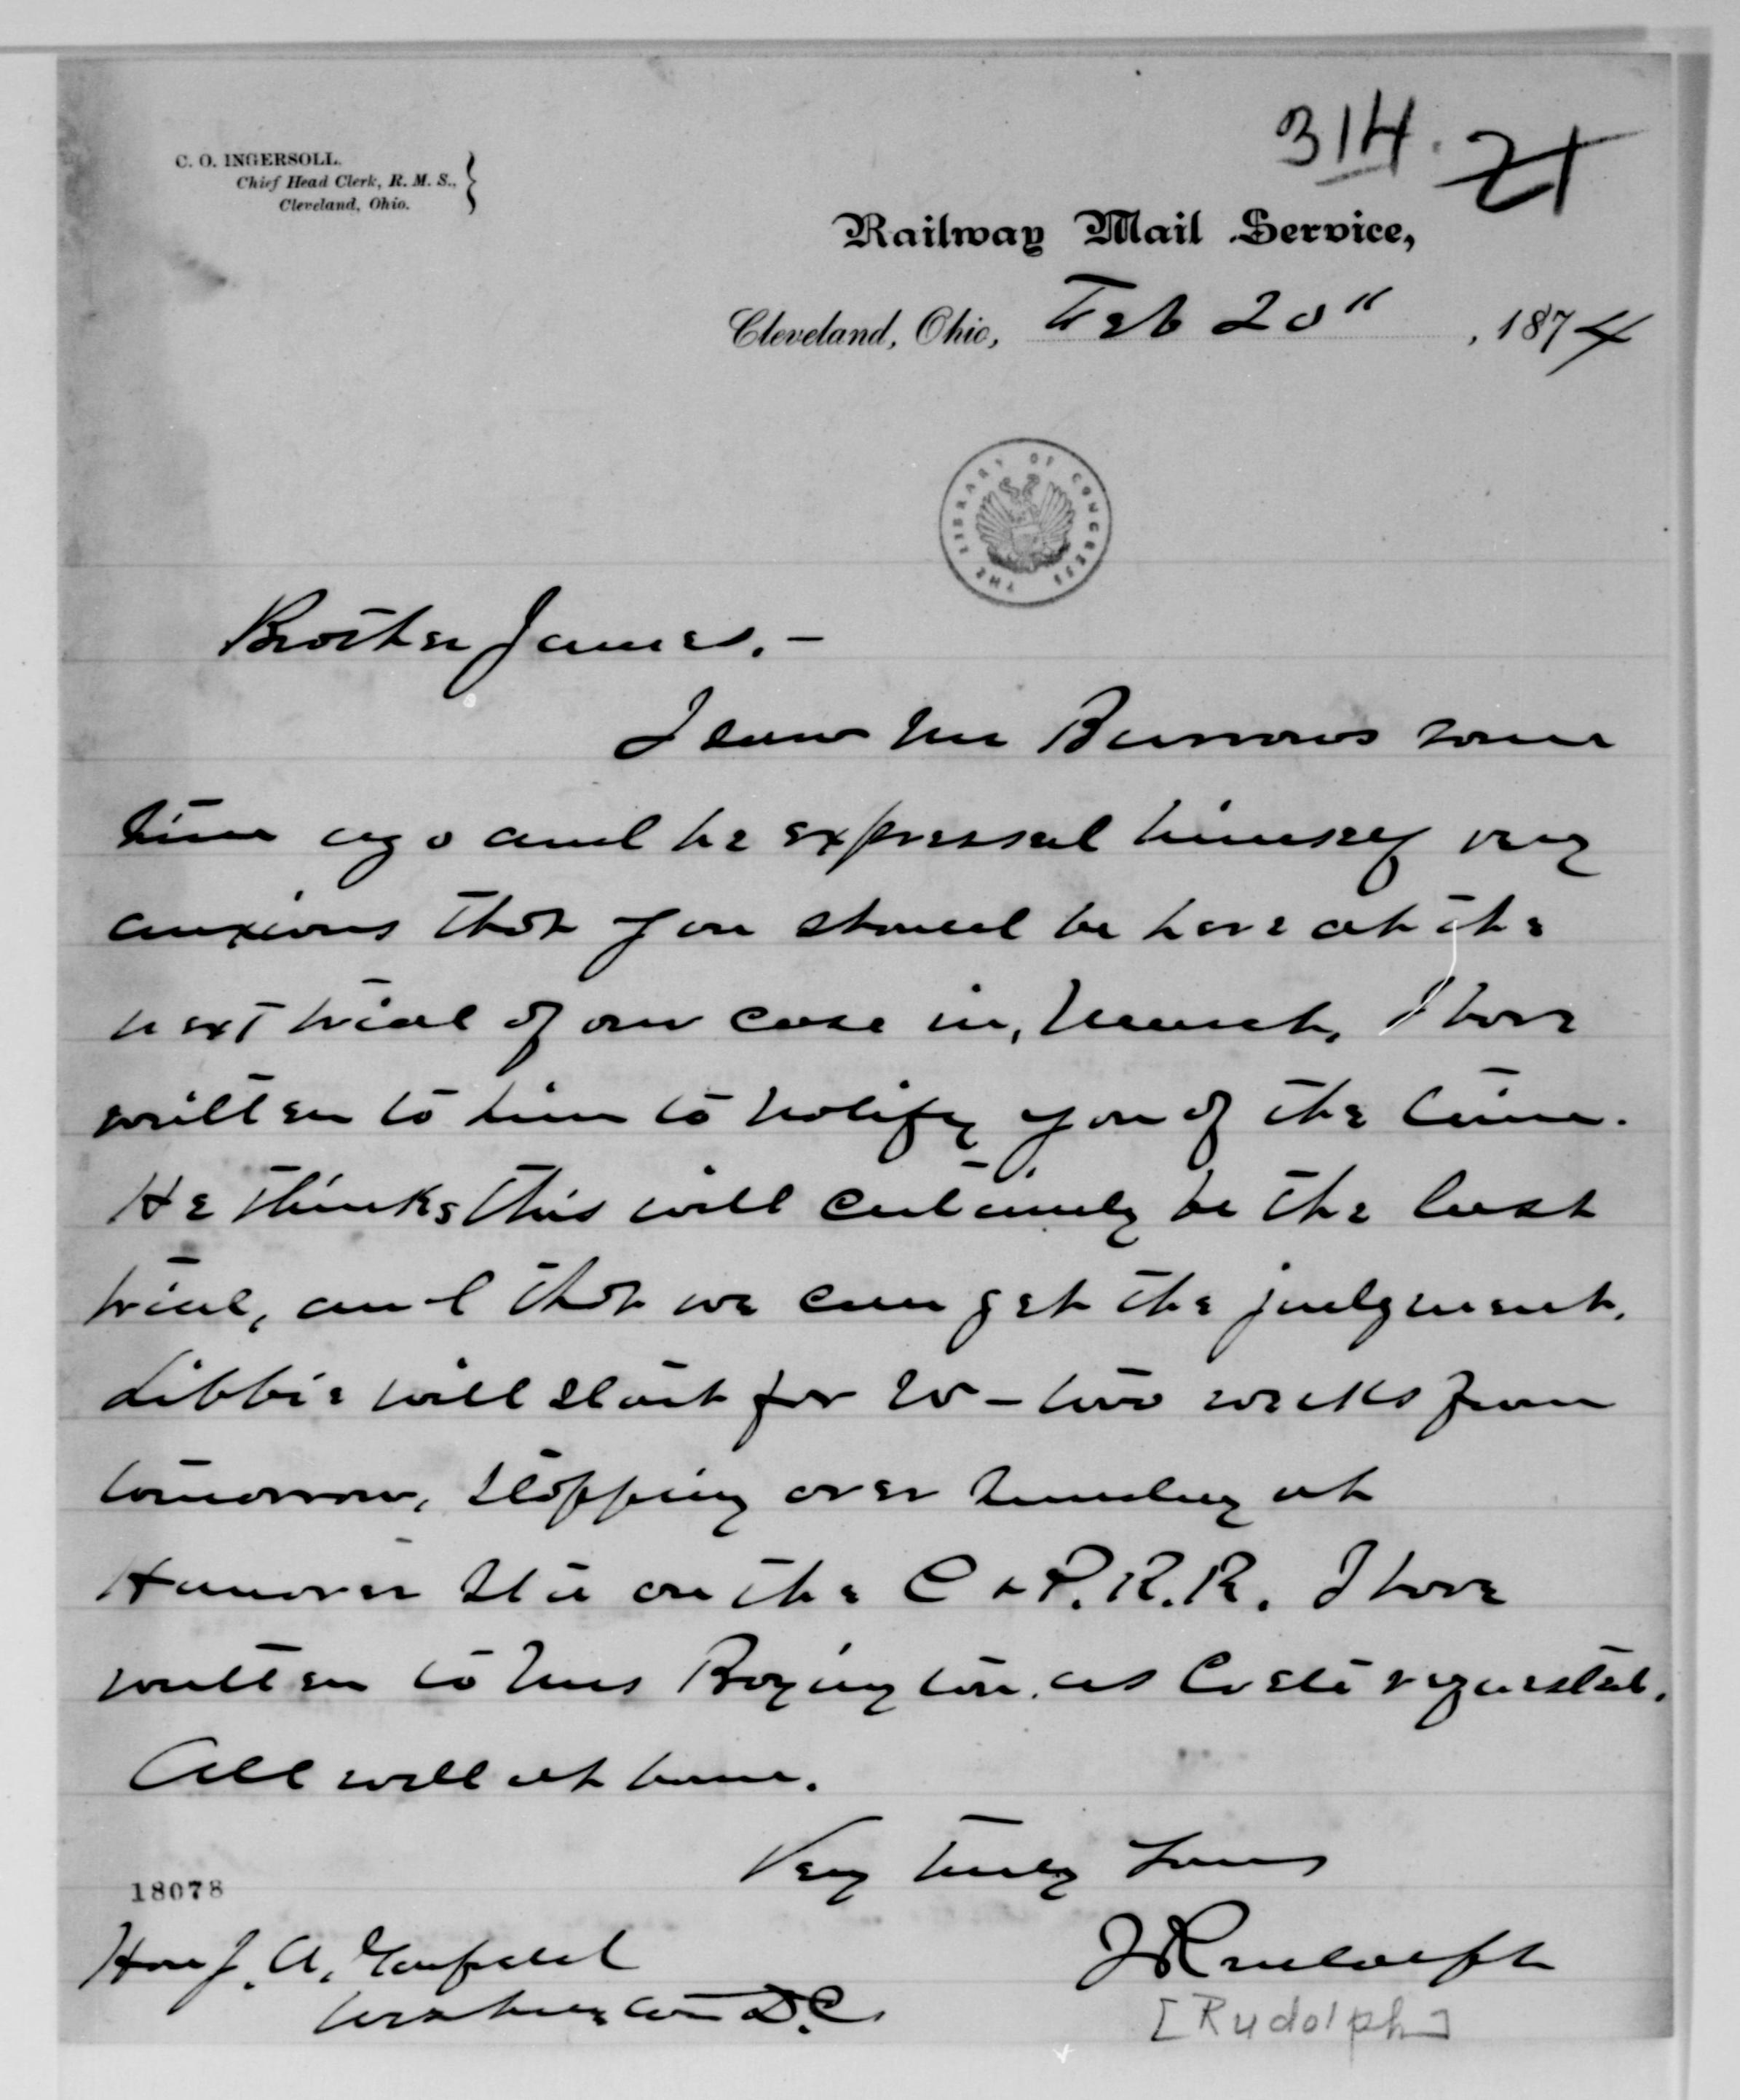 314. 21
C. O. INGERSOLL.
Chief Head Clerk, R. M. S.,
Cleveland, Ohio.
Railway Mail Service,
Cleveland, Ohio, Feb 20", 1874
THE LIBRARY OF CONGRESS
Brother James.-
I saw Mr Burrows some
time ago and he expressed himself very
anxious that you should be here at the
next trial of our case in, March, I have
written to him to notify you of the time.
He thinks this will certainly be the last
trial, and that we can get the judgment.
Libbie will start for W- two weeks from
tomorrow, stopping over Sunday at
Hanover Sta on the C & P. R. R. I have
written to Mrs Boyington. as Crete requested.
All well at home.
Very truly Yours
18078
Hon J. A. Garfield
Washington D.C.
J Rudolph
[Rudolph]